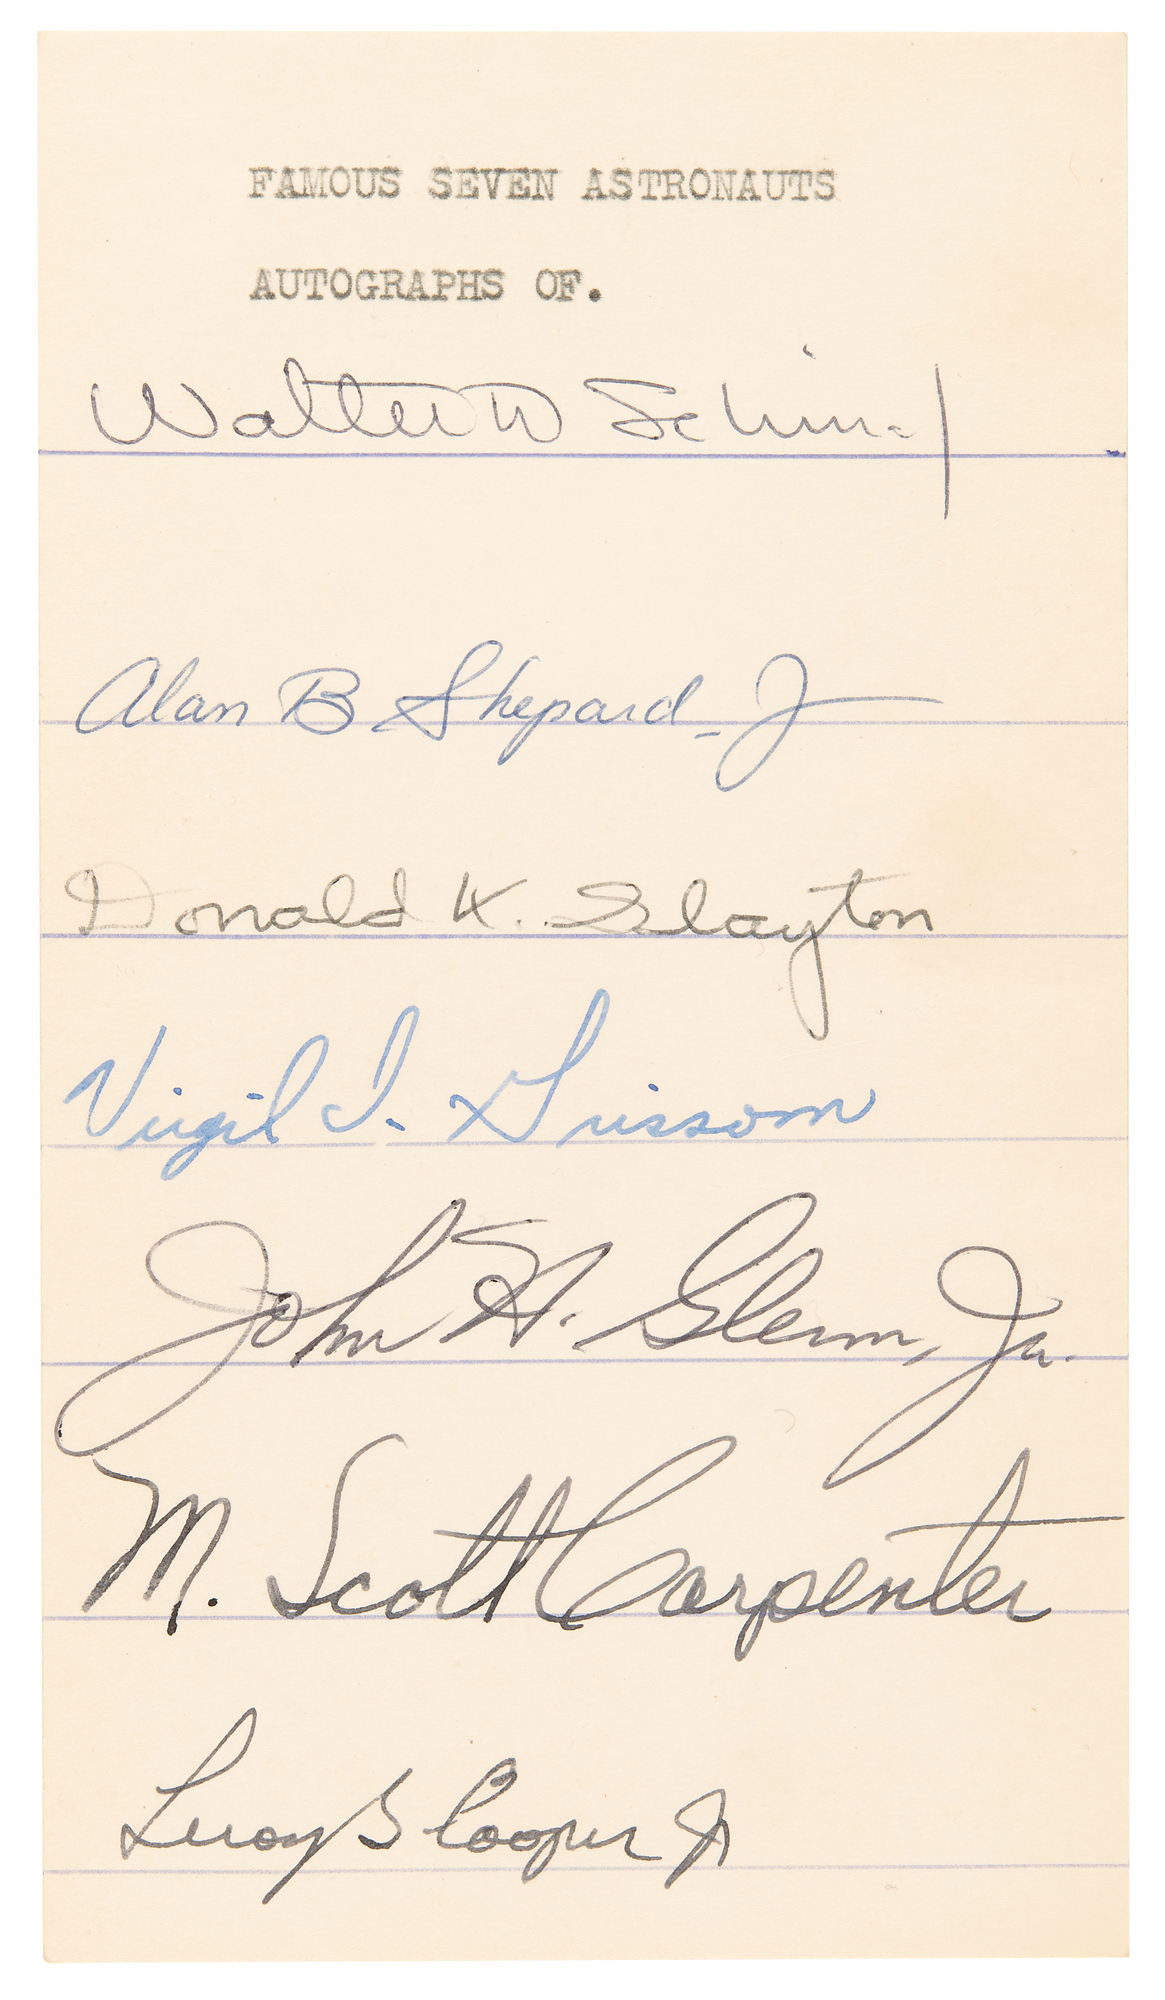 FAMOUS SEVEN ASTRONAUTS
AUTOGRAPHS OF.
Walter M Schirra Jr
Alan B Shepard Jr
Donald K. Slayton
Virgil I. Grissom
John H. Glenn, Jr.
M. Scott Carpenter
Leroy G Cooper Jr